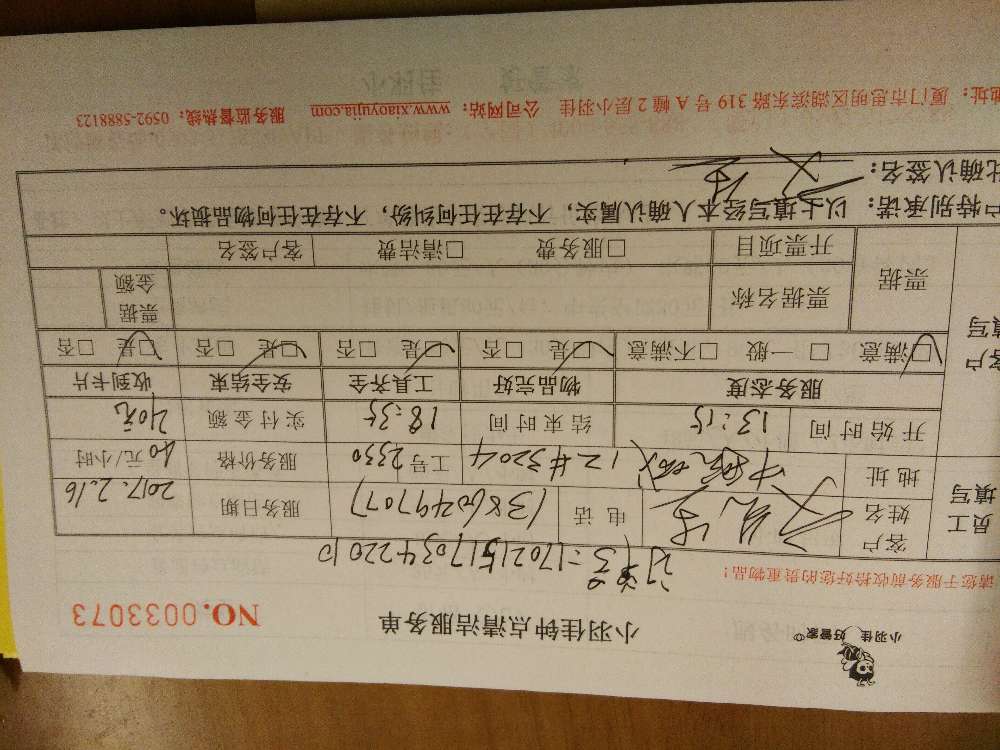 小羽佳 好管家
小羽佳钟点清洁服务单
NO.0033073
请您于服务前收拾好您的贵重物品!
订单号:1702151703422010
员工填写
客户姓名
电话
13860497077
服务日期
2017.2.16
地址
12#3204
工号
2330
服务价格
40元/小时
开始时间
13:15
结束时间
18:35
实付金额
210元
客户填写
服务态度
物品完好
工具齐全
安全结束
收到卡片
□满意 □一般 □不满意
□是 □否
□是 □否
□是 □否
□是 □否
票据
票据名称
票据金额
开票项目
□服务费 □清洁费
客户签名
户特别承诺:以上填写经本人确认属实,不存在任何纠纷,不存在任何物品损坏。
此确认签名:
地址:厦门市思明区湖滨东路 319 号 A 幢 2 层小羽佳 公司网站:www.xiaoyujia.com 服务监督热线:0592-5888123